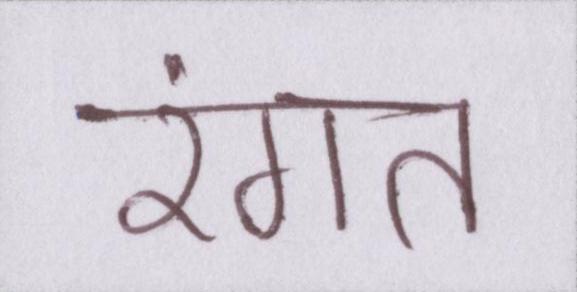 रंगत